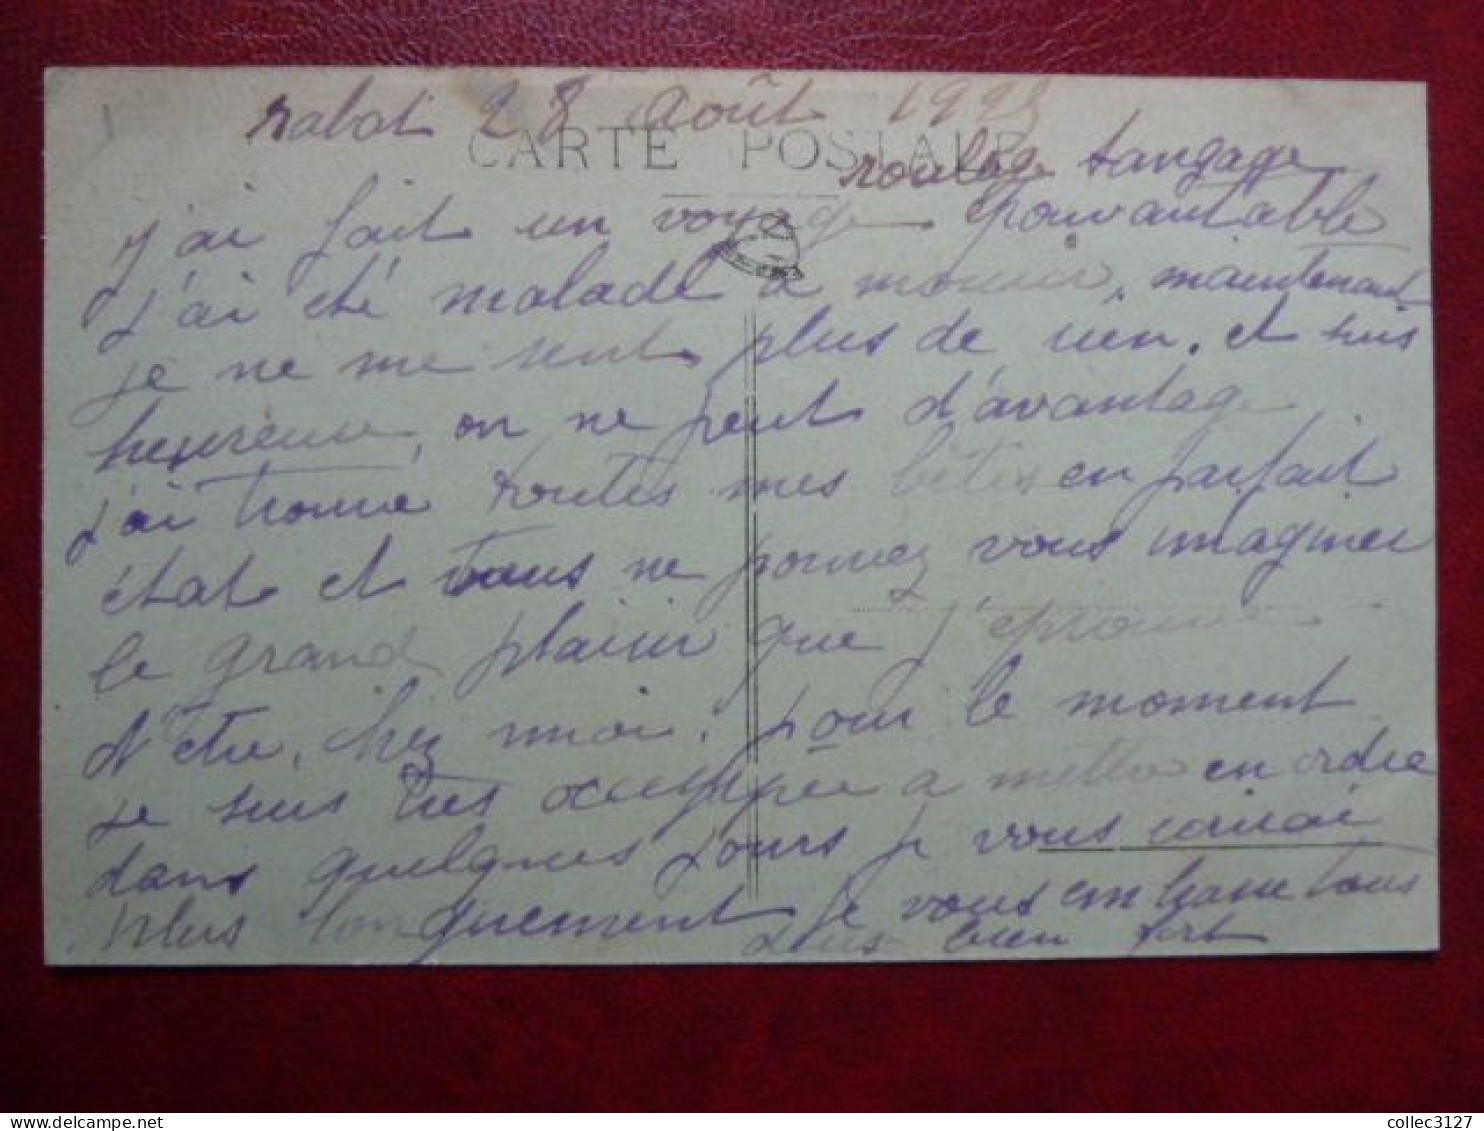 rabat 28 Août 192
CARTE POSTALE
roulage tangage
j'ai fait un voyage épouvantable
j'ai été malade a mourir, maintenant
je ne me sent plus de rien. et suis
heureuse, on ne peut d'avantage
j'ai trouvé toutes mes bêtes en parfait
état et vous ne pouvez vous imaginer
le grand plaisir que j'éprouve
d'être, chez moi. pour le moment
je suis très occuppée a mettre en ordre
dans quelques jours je vous écrirai
plus longuement je vous embrasse tous
bien fort
collec3127
www.delcampe.net